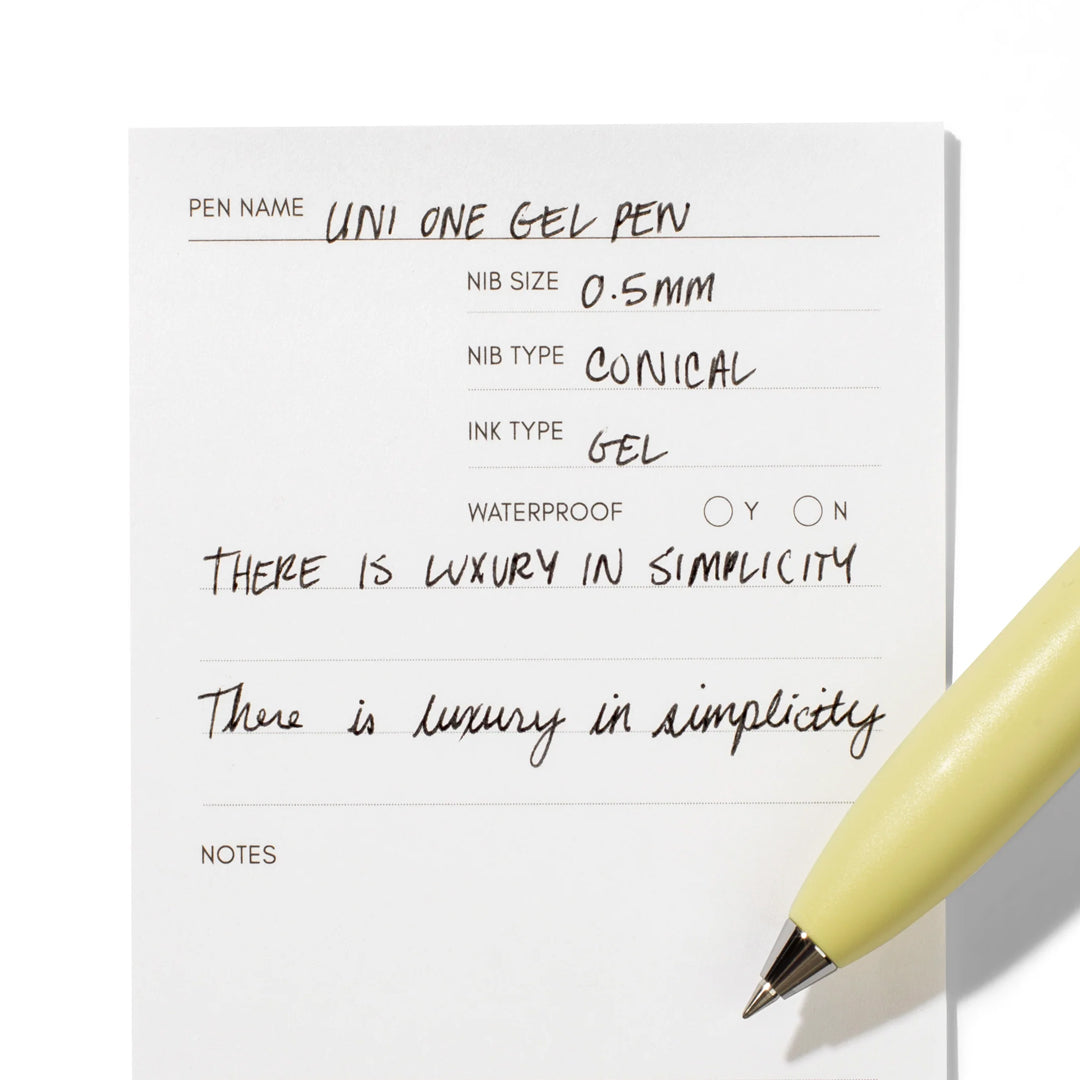 PEN NAME UNI ONE GEL PEN
NIB SIZE 0.5MM
NIB TYPE CONICAL
INK TYPE GEL
WATERPROOF Y N
THERE IS LUXURY IN SIMPLICITY
There is luxury in simplicity
NOTES